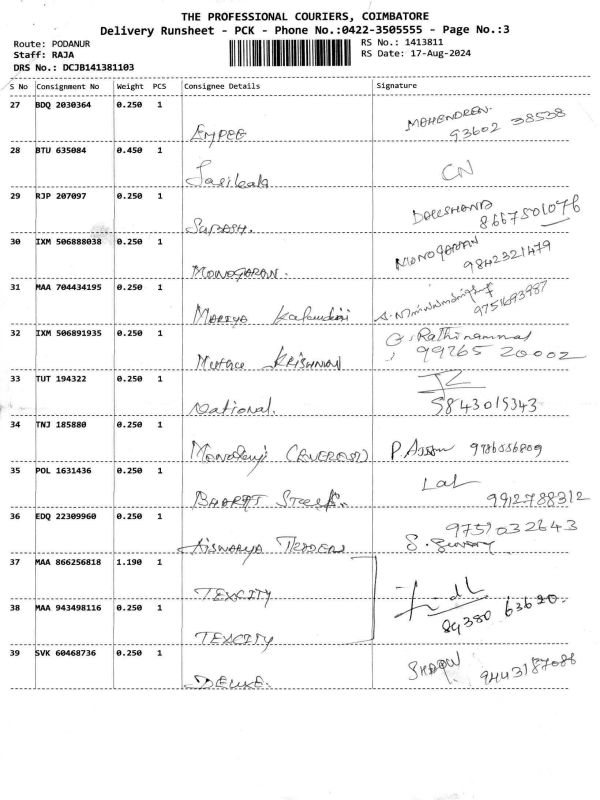 THE PROFESSIONAL COURIERS, COIMBATORE
Delivery Runsheet - PCK - Phone No.:0422-3505555 - Page No.:3
Route: PODANUR
Staff: RAJA
DRS No.: DCJB141381103
RS No.: 1413811
RS Date: 17-Aug-2024
S No Consignment No Weight PCS Consignee Details Signature
27 BDQ 2030364 0.250 1
EMPEE MAHENDREN. 93602 38538
28 BTU 635084 0.450 1
CN
29 RJP 207097 0.250 1
SUBASH. 8667501076
30 IXM 506888038 0.250 1
MONOGARAN. MONOGARAN 9842321479
31 MAA 704434195 0.250 1
MARIYA 9751693987
32 IXM 506891935 0.250 1
KRISHNAN G. Rathinammal 99765 20002
33 TUT 194322 0.250 1
National. 9843015343
34 TNJ 185880 0.250 1
35 POL 1631436 0.250 1
BHARAT Steel Lal 9912788312
36 EDQ 22309960 0.250 1
AISWARYA TRADERS 9751032643
37 MAA 866256818 1.190 1
TEXCITY
38 MAA 943498116 0.250 1
TEXCITY 89380 63620.
39 SVK 60468736 0.250 1
DELUXE. 9443187088